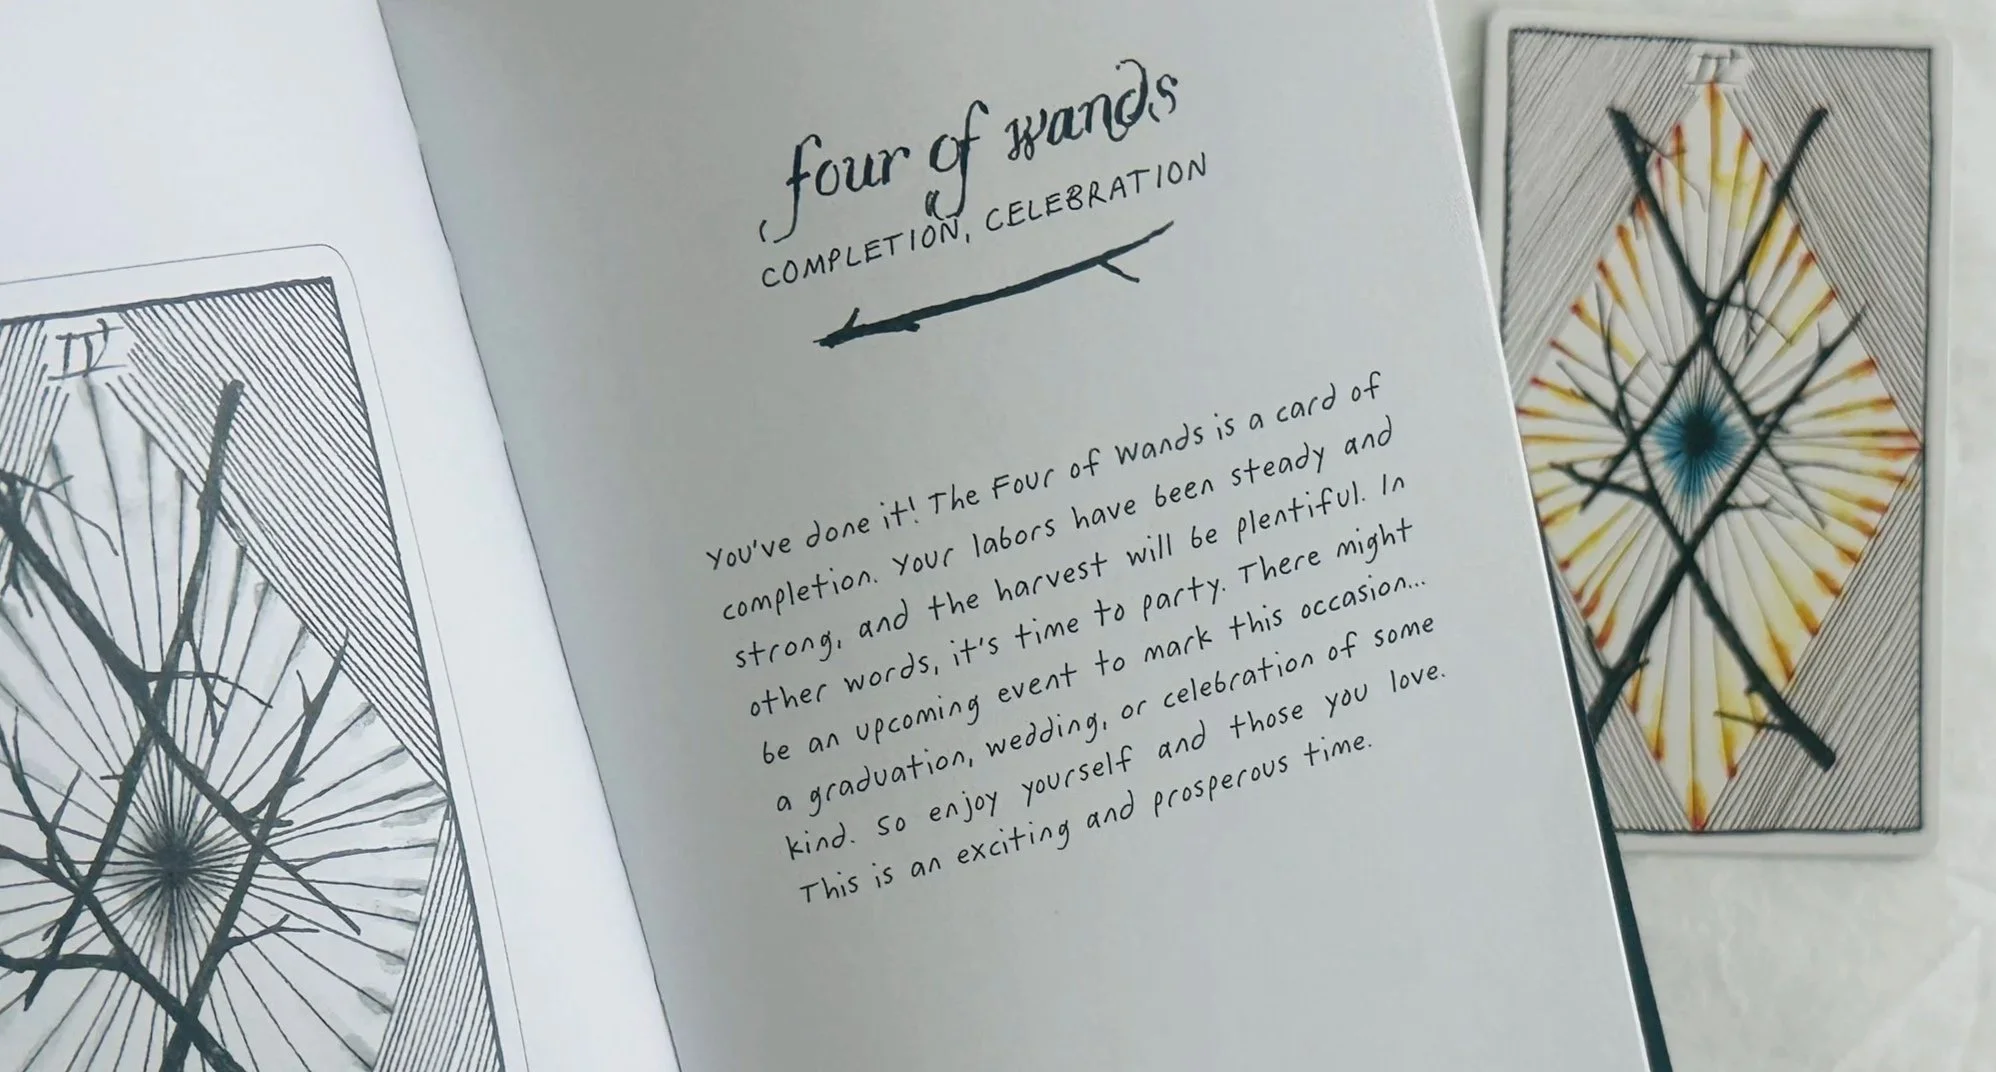 IV
four of wands
COMPLETION, CELEBRATION
You've done it! The Four of Wands is a card of
completion. Your labors have been steady and
strong, and the harvest will be plentiful. In
other words, it's time to party. There might
be an upcoming event to mark this occasion...
a graduation, wedding, or celebration of some
kind. So enjoy yourself and those you love.
This is an exciting and prosperous time.
IV